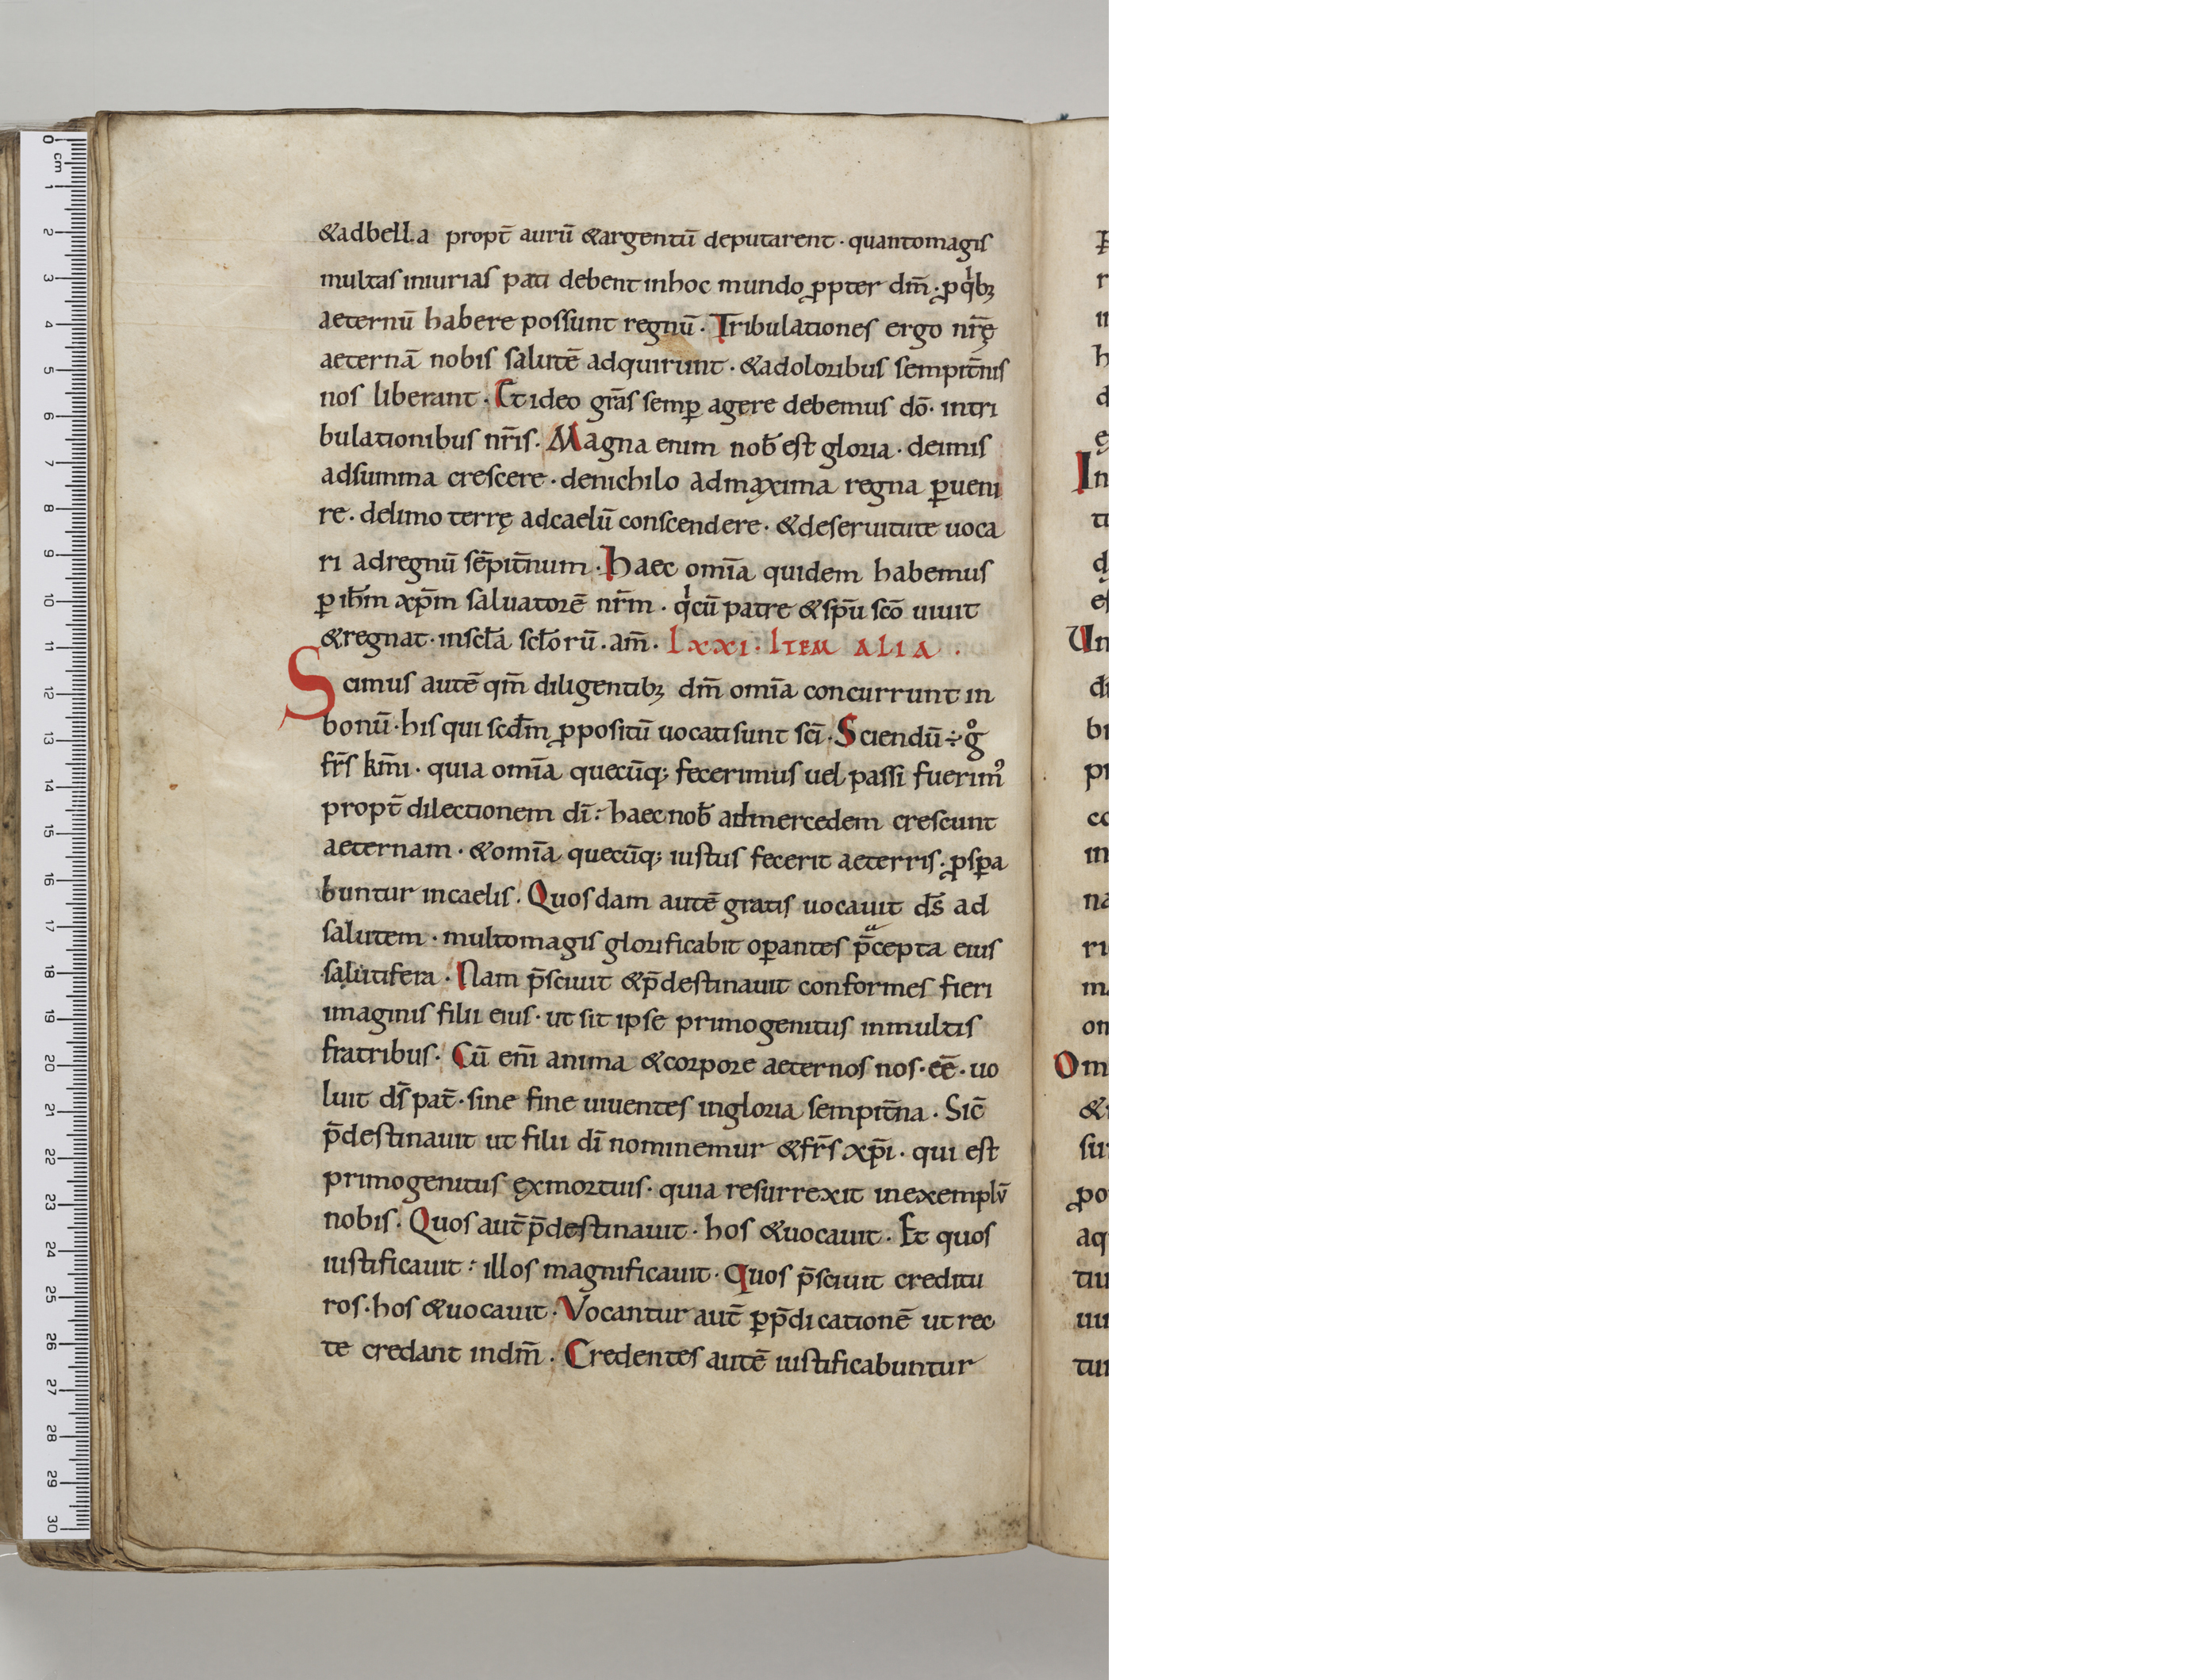 &adbella propt̄ aurū &argentū deputarent · quantomagis
multas iniurias pati debent inhoc mundo ꝓpter dm̄ · ꝓ qͥbꝫ
aeternū habere possunt regnū · Tribulationes ergo nr̄ę
aeternā nobis salutē adquirunt · &adoloribus sempit̄nis
nos liberant · Et ideo gr̄as semꝑ agere debemus dō · intri
bulationibus nr̄is · Magna enim nob̄ est gloria · deimis
adsumma crescere · denichilo admaxima regna ꝑueni
re · delimo terrę adcaelū conscendere · &deseruitute uoca
ri adregnū sēpit̄num · Haec om̄ia quidem habemus
ꝑ ih̄m xp̄m saluatorē nr̄m · qͥ cū patre &sp̄u scō uiuit
&regnat · inscl̄a scl̄orū · am̄ · LXXI : ITEM ALIA ·
Scimus autē qm̄ diligentibꝫ dm̄ om̄ia concurrunt in
bonū · his qui scd̄m ꝓpositū uocati sunt sc̄i · Sciendū ÷ gͦ
fr̄s km̄i · quia om̄ia quecūq; fecerimus uel passi fuerimꝰ
propt̄ dilectionem dī : haec nob̄ admercedem crescunt
aeternam · &om̄ia quecūq; iustus fecerit aeterris · ꝓsꝑa
buntur incaelis · Quosdam autē gratis uocauit ds̄ ad
salutem · multomagis glorificabit oꝑantes p̄cepta eius
salutifera · Nam p̄sciuit &p̄destinauit conformes fieri
imaginis filii eius · ut sit ipse primogenitus inmultis
fratribus · Cū eni̅ anima &corpore aeternos nos · eē · uo
luit ds̄ pat̄ · sine fine uiuentes ingloria sempit̄na · Sic̄
p̄destinauit ut filii dī nominemur &fr̄s xp̄i · qui est
primogenitus ęxmortuis · quia resurrexit inexemplū
nobis · Quos aut̄ p̄destinauit · hos &uocauit · Et quos
iustificauit : illos magnificauit · Quos p̄sciuit creditu
ros · hos &uocauit · Vocantur aut̄ ꝑp̄dicationē ut rec
te credant indm̄ · Credentes autē iustificabuntur